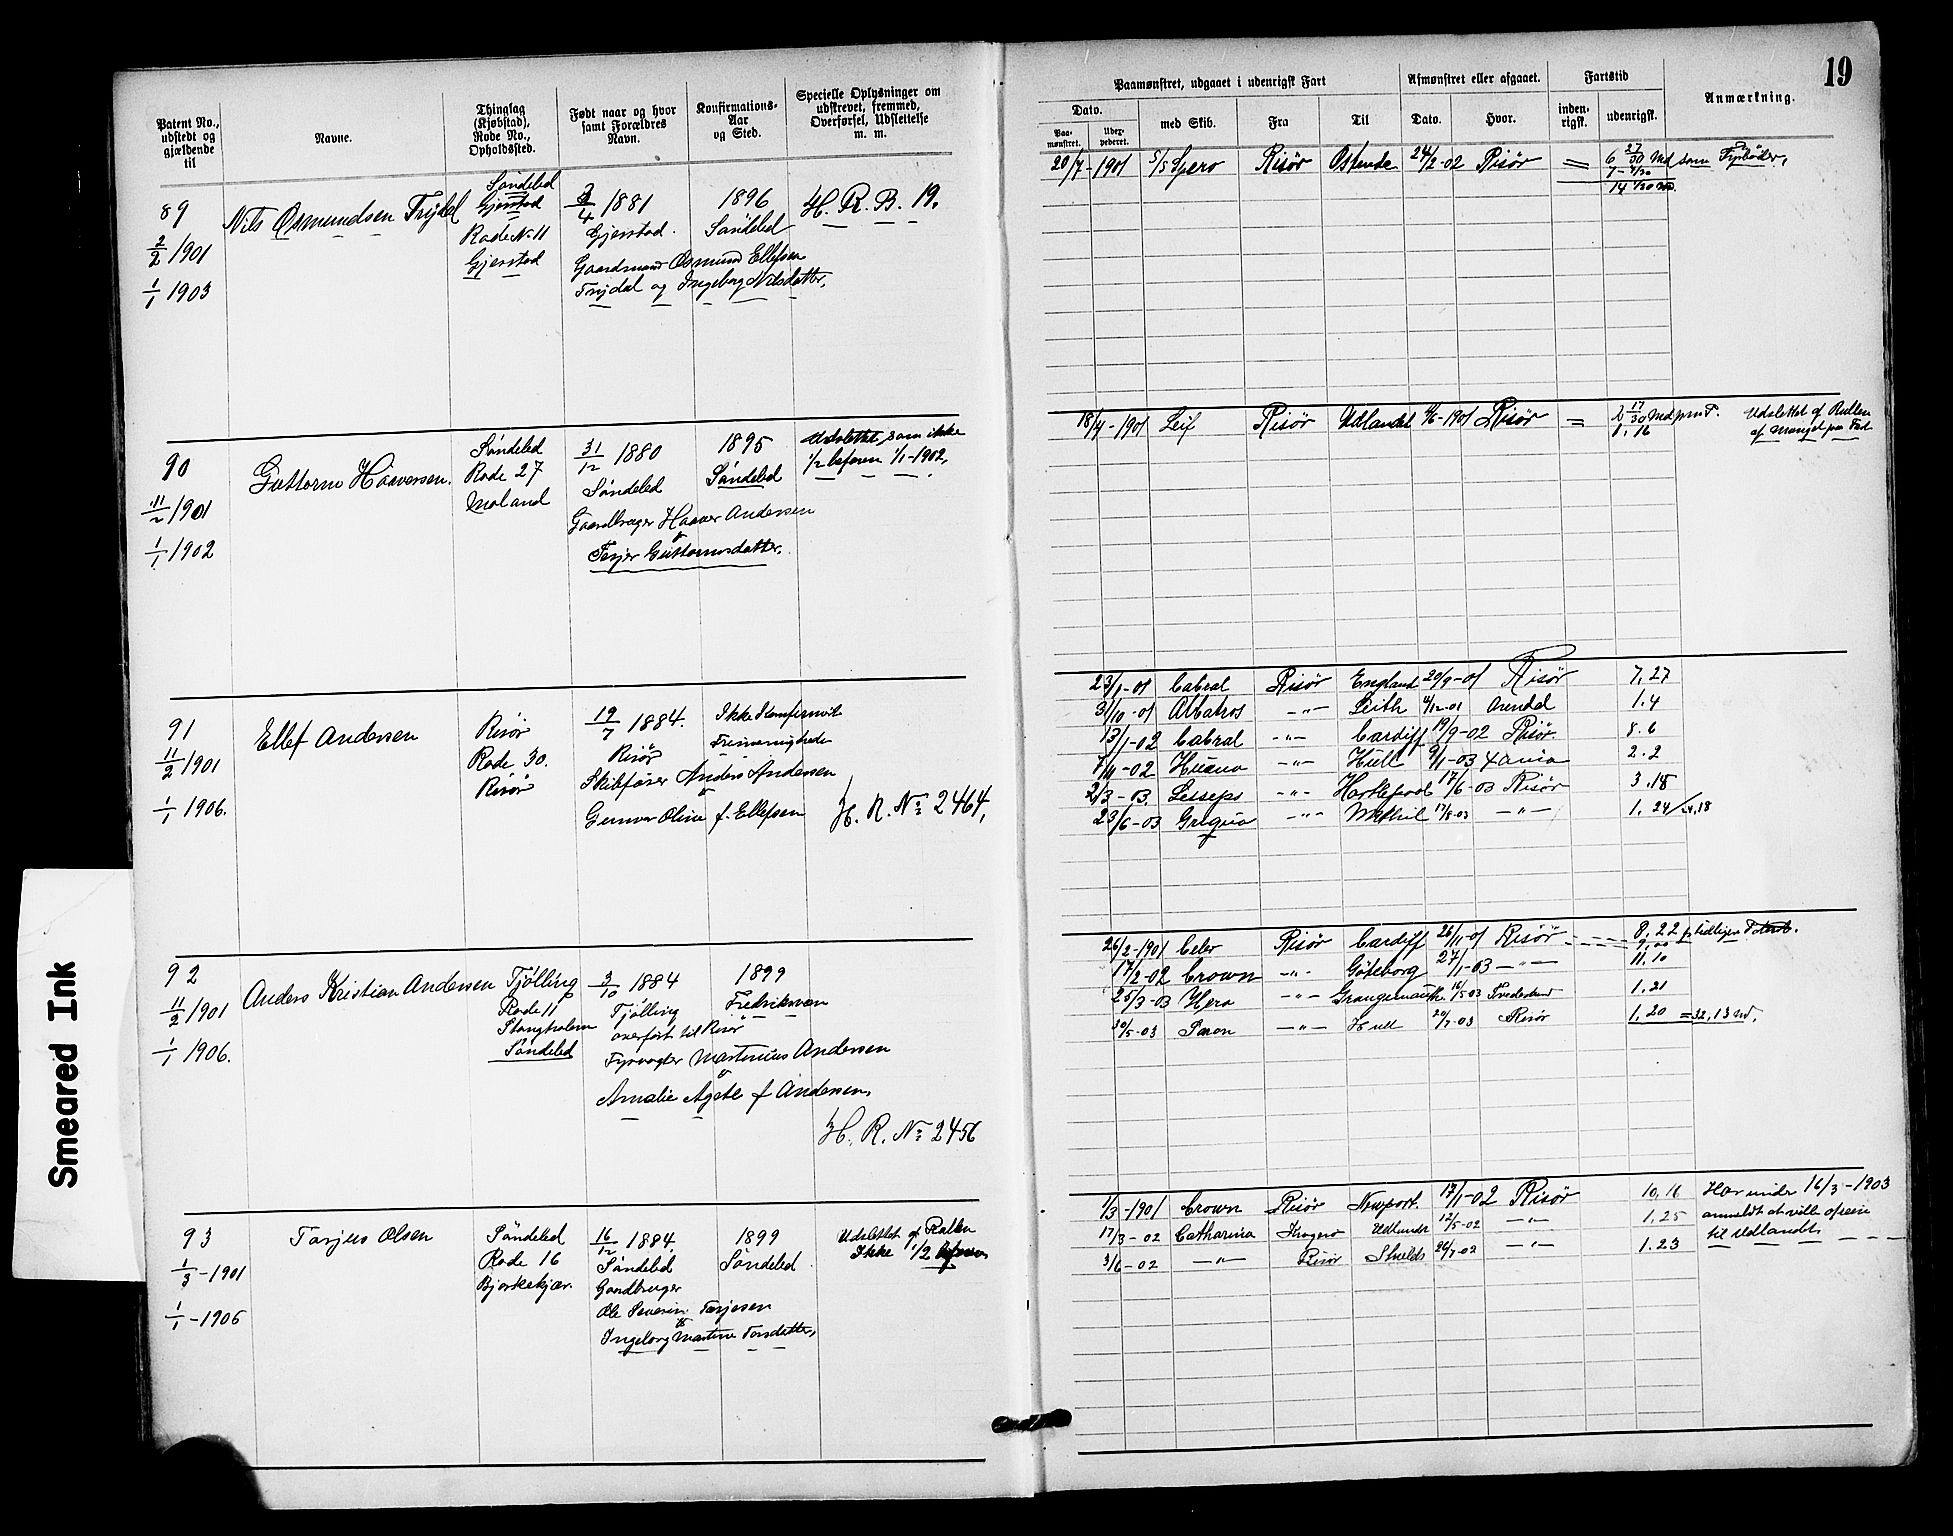 19
Patent No., udstedt og gjældende til
Navne.
Thinglag (Kjøbstad), Rode No., Opholdssted.
Født naar og hvor samt Forældres Navn.
Konfirmations-Aar og Sted.
Specielle Oplysninger om udskrevet, fremmed, Overførsel, Udslettelse m. m.
Paamønstret, udgaaet i udenrigsk Fart
Afmønstret eller afgaaet.
Fartstid
Anmærkning.
Dato.
Paa-mønstret.
Uder-pederet.
med Skib.
Fra
Til
Dato.
Hvor.
inden-rigsk.
udenrigsk.
89
2/2 1901
1/1 1903
Nils Osmundsen Trydal
Søndeled
Gjerstad
Rode No 11
Gjerstad
3/4 1881
Gjerstad.
Gaardmand Osmund Ellefsen
Trydal og Ingeborg Nilsdatter,
1896
Søndeled
H. R. B. 19.
20/7-1901 S/S Spero Risør Ostende 24/2-02 Risør = 6 27/30 Md som Fyrbøder,
90
11/2 1901
1/1 1902
Guttorm Haaversen.
Søndeled
Rode 27
Moland
31/12 1880
Søndeled
Gaardbruger Haaver Andersen
&
Tarjer Guttormsdatter.
1895
Søndeled
Udslettet, som ikke
1/2 befaren 1/1-1902,
18/4-1901 Leif Risør Udlandet 4/6-1901 Risør = 2 17/30 Md
1,16
Udslettet af Rullen
af Mangel paa Fart
91
11/2 1901
1/1 1906.
Ellef Andersen
Risør
Rode 30.
Risør
19/7 1884.
Risør
Skibsfører Anders Andersen
&
Gunvor Oline f. Ellefsen
Ikke Konfirmeret
Frimenighede
H. R. No 2464,
23/1-01 Cabral Risør England 20/9-01 Risør 7,27
3/10-01 Albatros -"- Leith 4/12-01 Arendal 1.4
13/1-02 Cabral -"- Cardiff 19/9-02 Risør. 8.6
7/11-02 -"- Hull 9/1-03 Xania 2.2
2/3-03. Lesseps -"- Hartlepool 17/6-03 Risør 3.15
23/6-03 Griqua -"- Methil 17/8-03 -"- 1.24/24,18
92
11/2 1901
1/1 1906.
Anders Kristian Andersen
Tjølling
Rode 11
Stangholmen
Søndeled
3/10 1884
Tjølling
overført til Risør
Fyrvogter Martinius Andersen
&
Amalie Agate f Andersen,
1899
Fredriksværn
H. R. No 2456
26/2-1901 Celer Risør Cardiff 26/11-01 Risør 8,22
9,00
17/2-02 Crown -"- Göteborg 27/1-03 -"- 11.10
25/3-03 Hera -"- Grangemouth 16/5-03 Tvedestrand 1.21
30/5-03 -"- Hull 20/7-03 Risør 1,20 =32,13 Md,
93
1/3-1901
1/1-1906
Tarjus Olsen
Søndeled
Rode 16
Bjorkekjær.
16/12 1884.
Søndeled
Gaardbruger
Ole Severin Tarjesen
&
Ingeborg Martine Torsdatter,
1899
Søndeled
Udslettet af Rullen
Ikke 1/2 befaren
1/3-1901 Crown Risør Newport. 17/1-02 Risør 10,16 Har under 16/3-1903
17/3-02 Catharina Kragerø Udlandet 12/5-02 -"- 1.25 anmeldt at ville afreise
3/6-02 -"- Risør Shields 26/7-02 -"- 1.23 til Udlandet
Smeared Ink